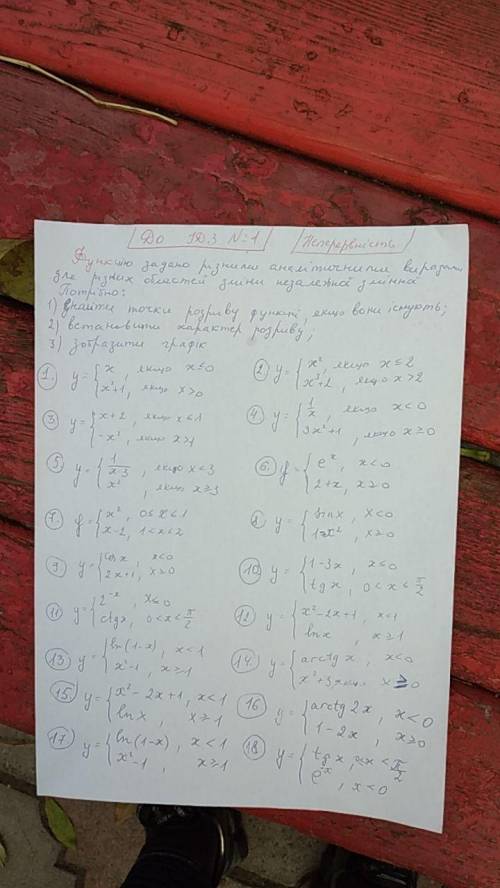 До ІДЗ №1 Неперервність
Функцію задано різними аналітичними виразами
для різних областей зміни незалежної змінної
Потрібно:
1) знайти точки розриву функції, якщо вони існують;
2) встановити характер розриву;
3) зобразити графік
1. y = { x, якщо x ≤ 0
x²+1, якщо x > 0
2. y = { x², якщо x ≤ 2
x²+2, якщо x > 2
3 y = { x+2, якщо x ≤ 1
-x², якщо x > 1
4. y = { 1/x, якщо x < 0
3x²+1, якщо x ≥ 0
5. y = { 1/(x-3), якщо x < 3
x², якщо x ≥ 3
6. y = { eˣ, x < 0
2+x, x ≥ 0
7. y = { x², 0 ≤ x ≤ 1
x-2, 1 < x ≤ 2
8 y = { sin x, x < 0
1-x², x ≥ 0
9 y = { cos x, x < 0
2x+1, x ≥ 0
10. y = { 1-3x, x ≤ 0
tg x, 0 < x ≤ π/2
11 y = { 2⁻ˣ, x ≤ 0
ctg x, 0 < x ≤ π/2
12 y = { x²-2x+1, x < 1
ln x, x ≥ 1
13. y = { ln(1-x), x < 1
x²-1, x ≥ 1
14. y = { arctg x, x < 0
x²+3, x ≥ 0
15. y = { x²-2x+1, x < 1
ln x, x ≥ 1
16 y = { arctg 2x, x < 0
1-2x, x ≥ 0
17 y = { ln(1-x), x < 1
x²-1, x ≥ 1
18. y = { tg x, 0 ≤ x < π/2
e⁻ˣ, x < 0